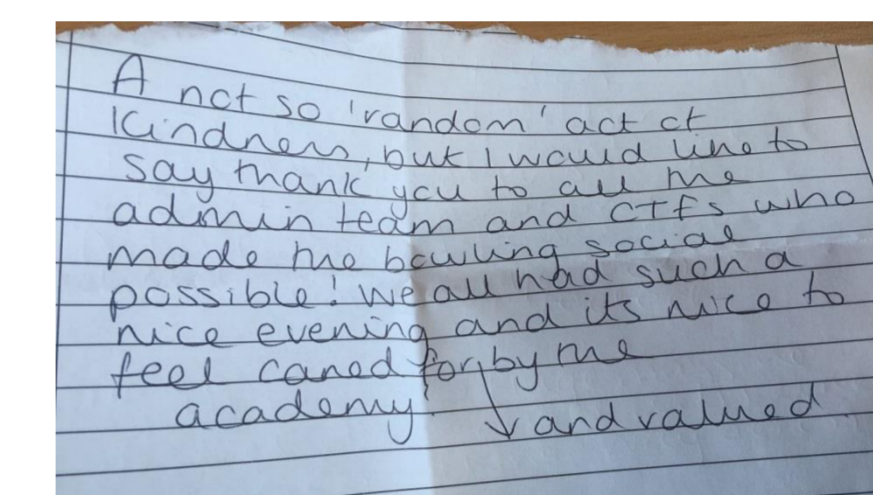 A not so 'random' act of
Kindness, but I would like to
say thank you to all the
admin team and CTFs who
made the bowling social
possible! We all had such a
nice evening and its nice to
feel cared for by the
academy! ↓ and valued